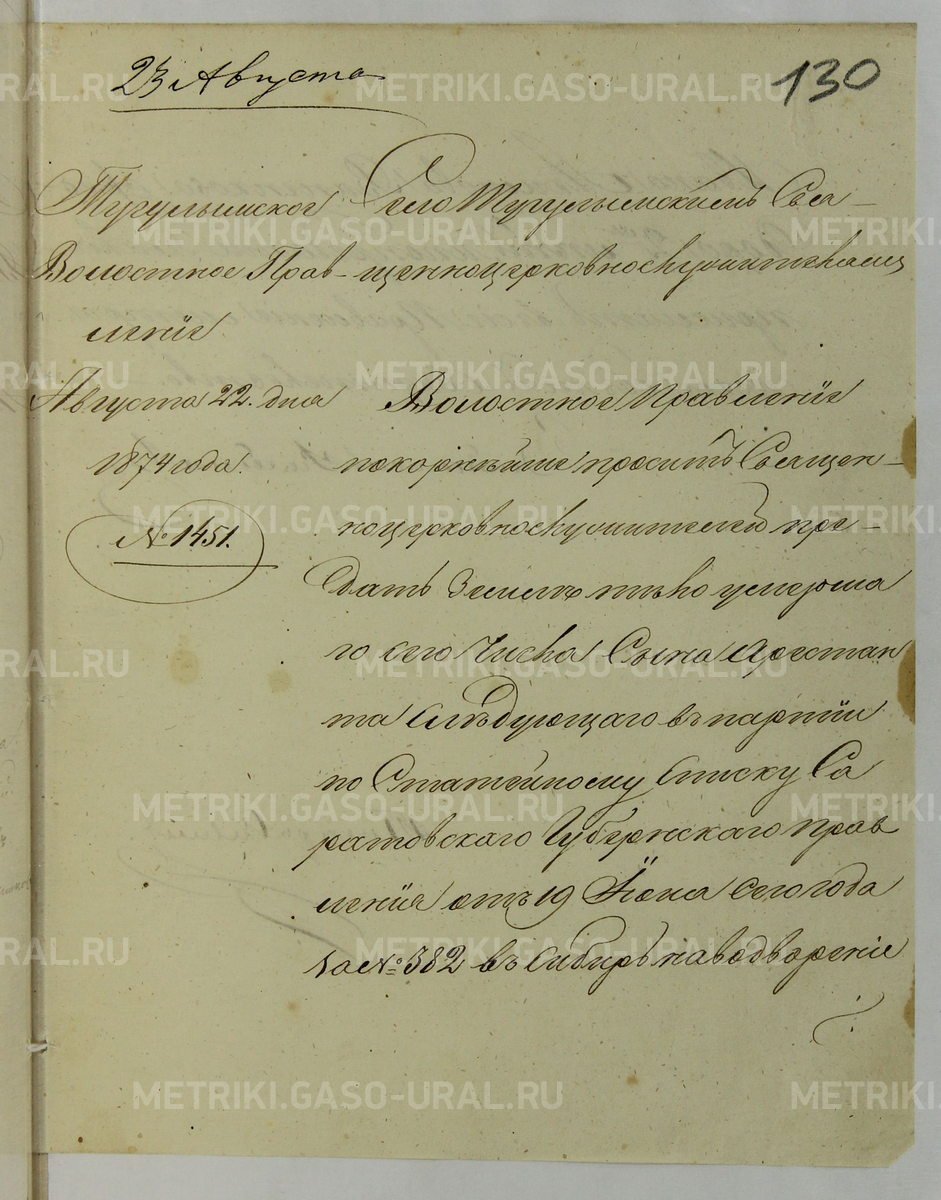 23 Августа
130
Тугулымское
Волостное Прав-
ленiе
Августа 22 дня
1874 года.
№ 1451.
Село Тугулымскимъ Свя-
щенноцерковнослужителямъ
Волостное Правленiе
покорнѣйше проситъ Священ-
ноцерковнослужителей пре-
дать Землѣ тѣло умерша
го сего Числа Сына Арестан
та слѣдующаго въ партiи
по Статейному списку Са
ратовскаго Губернскаго прав
ленiя отъ 19 Iюня сего года
за № 382 въ Сибирь на водворенiе
METRIKI.GASO-URAL.RU